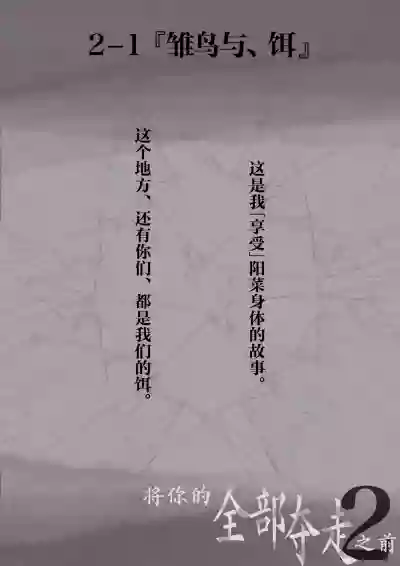 2-1『雏鸟与、饵』
这是我「享受」阳菜身体的故事。
这个地方、还有你们、都是我们的饵。
将你的
全部夺走
之前
2